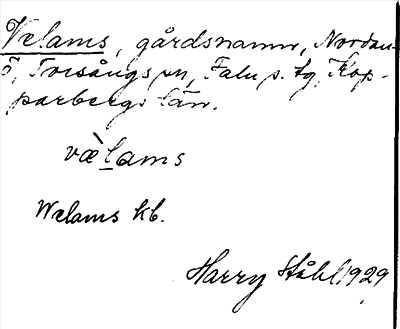 Velams, gårdsnamn, Nordan-
ö, Torsångs sn, Falu s. tg, Kop-
parbergs län.
væ̀lams
Welams kb.
Harry Ståhl 1929